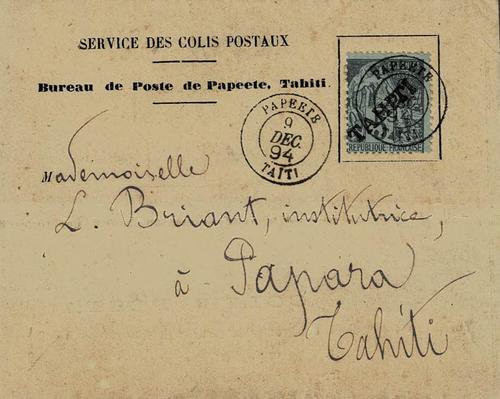 SERVICE DES COLIS POSTAUX
Bureau de Poste de Papeete, Tahiti.
PAPEETE
9
DEC.
94
TAITI
PAPEETE
TAHITI
REPUBLIQUE FRANÇAISE
Mademoiselle
L. Briant, institutrice,
à Papara
Tahiti